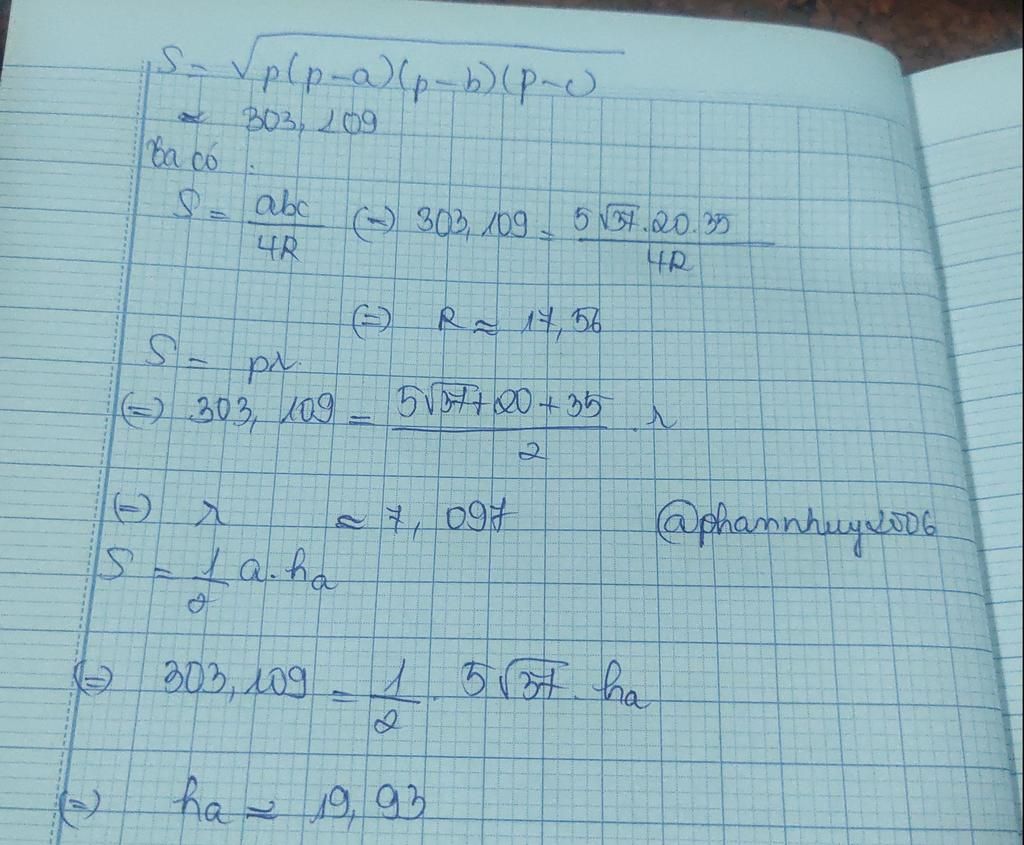 S = √p(p-a)(p-b)(p-c)
≈ 303,109
Ta có :
S = abc/4R (=) 303,109 = 5√37.20.35/4R
(=) R ≈ 17,56
S = pr.
(=) 303,109 = 5√37+20+35/2 . r
(=) r ≈ 7,097 @phannhuy2006
S = 1/2 a.ha
(=) 303,109 = 1/2 . 5√37 . ha
(=) ha ≈ 19,93